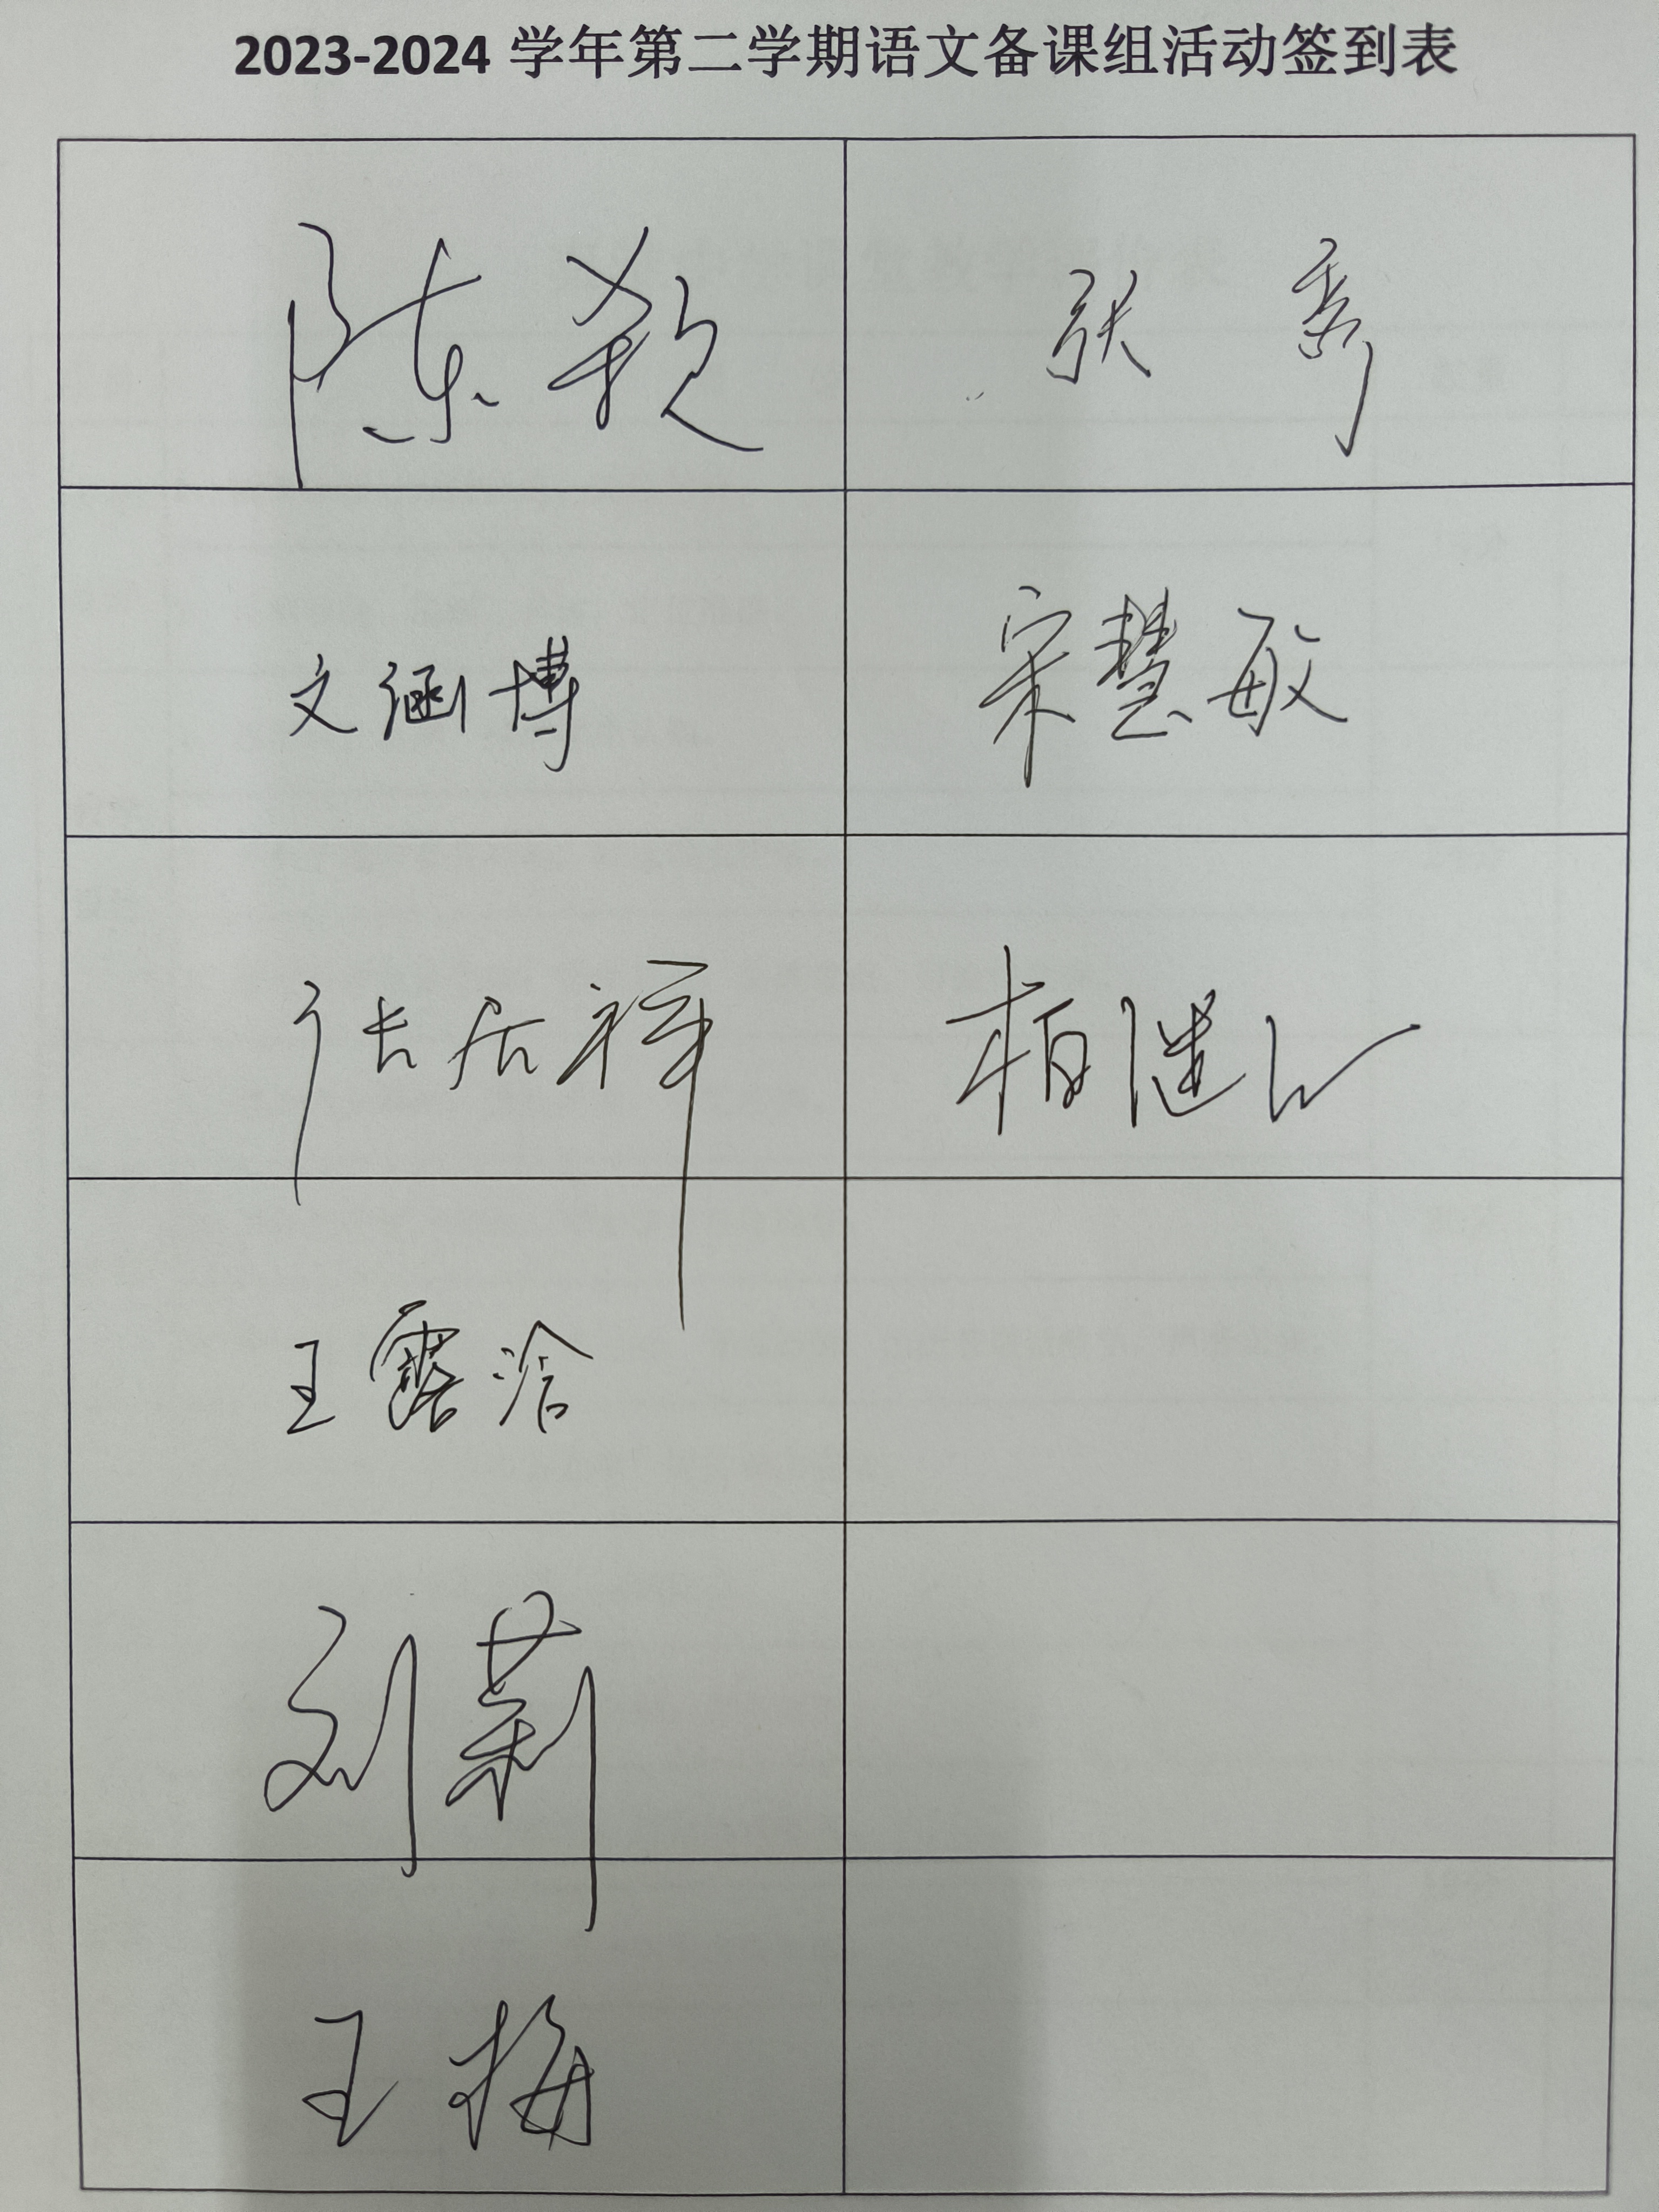 2023-2024 学年第二学期语文备课组活动签到表
陈
张 秀
文涵博
宋慧敏
张居祥
柏继
王露洽
刘莉
王梅